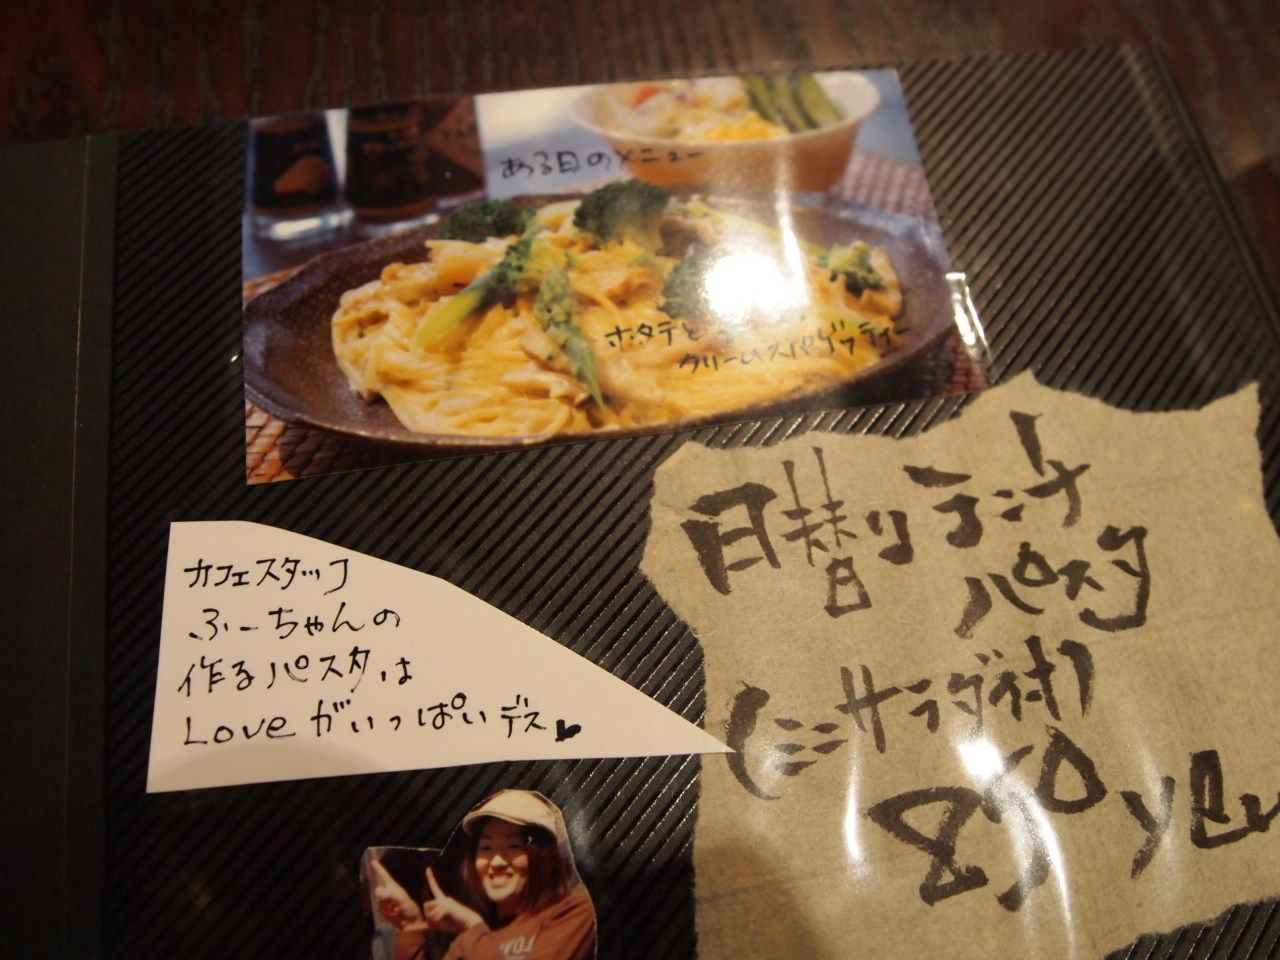 ある日のメニュー
ホタテと
クリームスパゲッティー
日替りランチ
パスタ
(ミニサラダ付)
850yen
カフェスタッフ
ふーちゃんの
作るパスタは
Loveがいっぱいデス